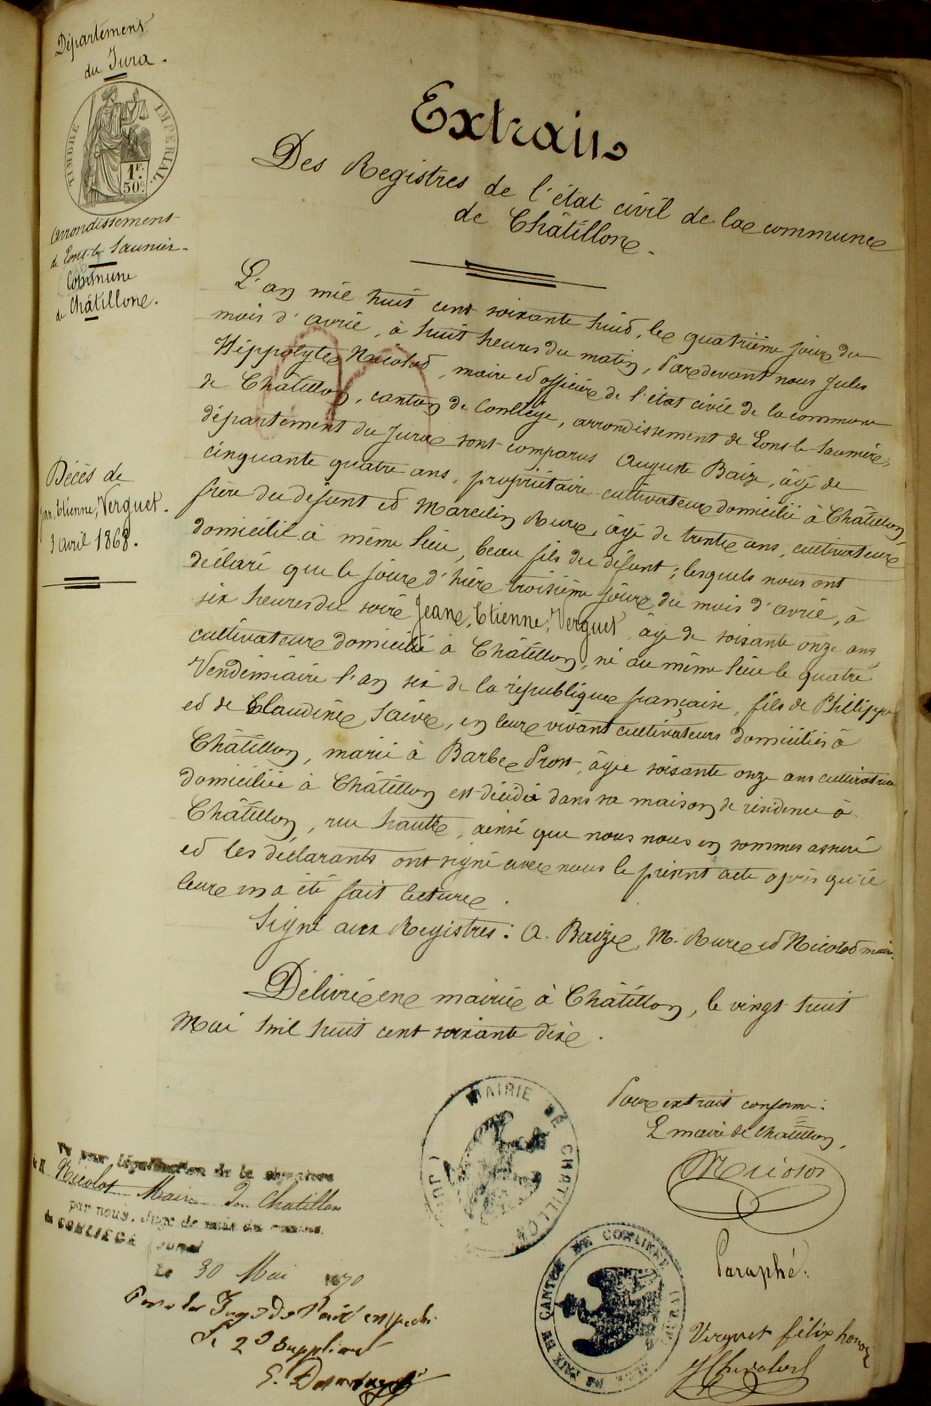 Département
du Jura.
TIMBRE IMPÉRIAL
1F.
50C.
arrondissement
de Lons-le-Saunier.
Commune
de Châtillon.
Extrait
Des Registres de l'état civil de la commune
de Châtillon.
L'an mil huit cent soixante huit, le quatrième jour du
mois d'avril, à huit heures du matin, Pardevant nous Jules
Hippolyte Nicolod, maire et officier de l'état civil de la commune
de Châtillon, canton de Conliège, arrondissement de Lons le Saunier,
département du Jura sont comparus Auguste Baize, âgé de
cinquante quatre ans, propriétaire cultivateur domicilié à Châtillon,
frère du défunt et Marcelin Rure, âgé de trente ans, cultivateur
domicilié à même lieu, beau fils du défunt; lesquels nous ont
déclaré que le jour d'hier troisième jour du mois d'avril, à
six heures du soir Jean, Etienne, Verguet, âgé de soixante onze ans
cultivateur domicilié à Châtillon, né au même lieu le quatre
Vendémiaire l'an six de la république française, fils de Philippe
et de Claudine Saive, en leur vivant cultivateurs domiciliés à
Châtillon, marié à Barbe Prost, âgée soixante onze ans cultivatrice
domiciliée à Châtillon est décédé dans sa maison de résidence à
Châtillon, rue haute, ainsi que nous nous en sommes assuré
et les déclarants ont signé avec nous le présent acte après qu'il
leur en a été fait lecture.
Signé aux Registres: A. Baize, M. Rure et Nicolod maire.
Décès de
Jean, Etienne, Verguet.
3 avril 1868.
Délivré en mairie à Châtillon, le vingt huit
Mai mil huit cent soixante dix.
Pour extrait conforme:
Le maire de Chatillon,
Nicolod
MAIRIE DE CHATILLON
Vu pour légalisation de la signature
de M. Nicolot Maire de Chatillon
par nous, Juge de paix du canton
de CONLIEGE (Jura)
Le 30 Mai 1870
Pour le Juge de Paix empêché
Le 2d Suppléant
PAIX DE CANTON DE CONLIEGE
Paraphé:
Verguet félix honoré